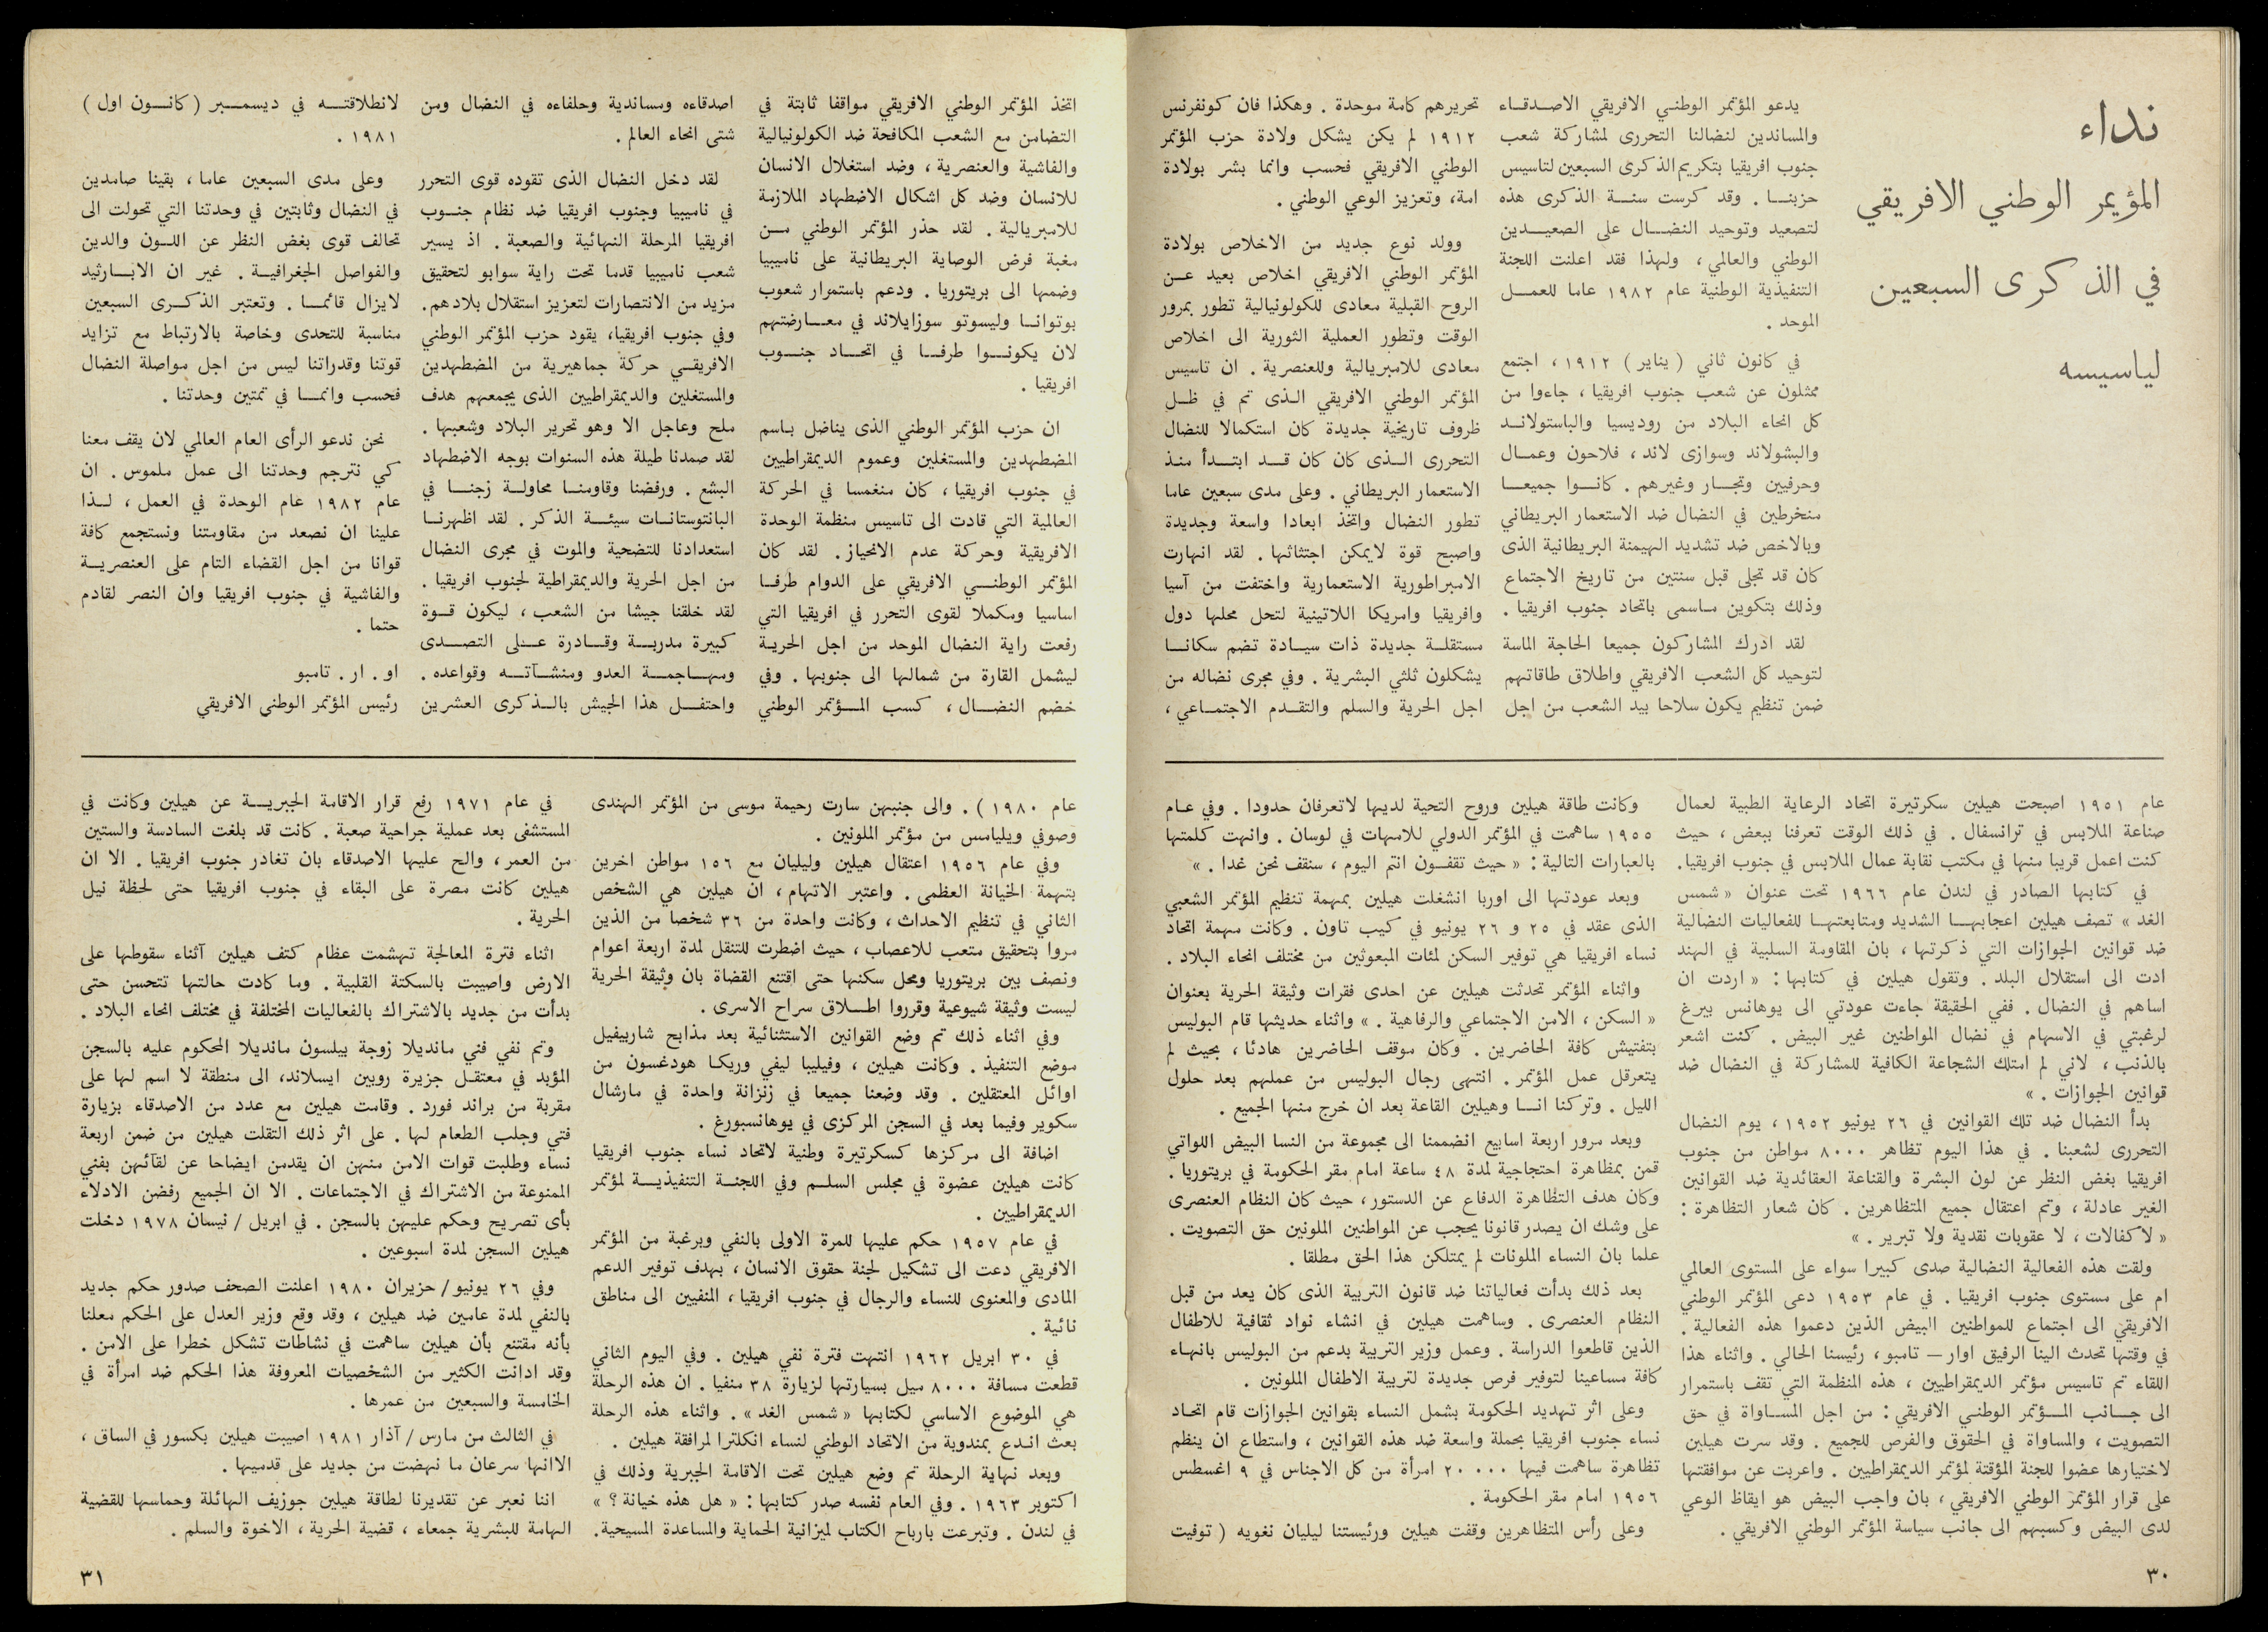 نداء
المؤيمر الوطني الافريقي
في الذكرى السبعين
لياسيسه
يدعو المؤتمر الوطني الافريقي الاصدقاء
والمساندين لنضالنا التحررى لمشاركة شعب
جنوب افريقيا بتكريم الذكرى السبعين لتاسيس
حزبنا . وقد كرست سنة الذكرى هذه
لتصعيد وتوحيد النضال على الصعيدين
الوطني والعالمي ، ولهذا فقد اعلنت اللجنة
التنفيذية الوطنية عام ١٩٨٢ عاما للعمل
الموحد .
في كانون ثاني ( يناير ) ١٩١٢ ، اجتمع
ممثلون عن شعب جنوب افريقيا ، جاءوا من
كل انحاء البلاد من روديسيا والباستولاند
والبشولاند وسوازى لاند ، فلاحون وعمال
وحرفيين وتجار وغيرهم . كانوا جميعا
منخرطين في النضال ضد الاستعمار البريطاني
وبالاخص ضد تشديد الهيمنة البريطانية الذى
كان قد تجلى قبل سنتين من تاريخ الاجتماع
وذلك بتكوين ماسمى باتحاد جنوب افريقيا .
لقد ادرك المشاركون جميعا الحاجة الماسة
لتوحيد كل الشعب الافريقي واطلاق طاقاتهم
ضمن تنظيم يكون سلاحا بيد الشعب من اجل
تحريرهم كامة موحدة . وهكذا فان كونفرنس
١٩١٢ لم يكن يشكل ولادة حزب المؤتمر
الوطني الافريقي فحسب وانما بشر بولادة
امة، وتعزيز الوعي الوطني .
وولد نوع جديد من الاخلاص بولادة
المؤتمر الوطني الافريقي اخلاص بعيد عن
الروح القبلية معادى للكولونيالية تطور بمرور
الوقت وتطور العملية الثورية الى اخلاص
معادى للامبريالية وللعنصرية . ان تاسيس
المؤتمر الوطني الافريقي الذى تم في ظل
ظروف تاريخية جديدة كان استكمالا للنضال
التحررى الذى كان كان قد ابتدأ منذ
الاستعمار البريطاني . وعلى مدى سبعين عاما
تطور النضال واتخذ ابعادا واسعة وجديدة
واصبح قوة لايمكن اجتثاثها . لقد انهارت
الامبراطورية الاستعمارية واختفت من آسيا
وافريقيا وامريكا اللاتينية لتحل محلها دول
مستقلة جديدة ذات سيادة تضم سكانا
يشكلون ثلثي البشرية . وفي مجرى نضاله من
اجل الحرية والسلم والتقدم الاجتماعي ،
اتخذ المؤتمر الوطني الافريقي مواقفا ثابتة في
التضامن مع الشعب المكافحة ضد الكولونيالية
والفاشية والعنصرية ، وضد استغلال الانسان
للانسان وضد كل اشكال الاضطهاد الملازمة
للامبريالية . لقد حذر المؤتمر الوطني من
مغبة فرض الوصاية البريطانية على ناميبيا
وضمها الى بريتوريا . ودعم باستمرار شعوب
بوتوانا وليسوتو سوزايلاند في معارضتهم
لان يكونوا طرفا في اتحاد جنوب
افريقيا .
ان حزب المؤتمر الوطني الذى يناضل باسم
المضطهدين والمستغلين وعموم الديمقراطيين
في جنوب افريقيا ، كان منغمسا في الحركة
العالمية التي قادت الى تاسيس منظمة الوحدة
الافريقية وحركة عدم الانحياز . لقد كان
المؤتمر الوطني الافريقي على الدوام طرفا
اساسيا ومكملا لقوى التحرر في افريقيا التي
رفعت راية النضال الموحد من اجل الحرية
ليشمل القارة من شمالها الى جنوبها . وفي
خضم النضال ، كسب المؤتمر الوطني
اصدقاءه ومساندية وحلفاءه في النضال ومن
شتى انحاء العالم .
لقد دخل النضال الذى تقوده قوى التحرر
في ناميبيا وجنوب افريقيا ضد نظام جنوب
افريقيا المرحلة النهائية والصعبة . اذ يسير
شعب ناميبيا قدما تحت راية سوابو لتحقيق
مزيد من الانتصارات لتعزيز استقلال بلادهم.
وفي جنوب افريقيا، يقود حزب المؤتمر الوطني
الافريقي حركة جماهيرية من المضطهدين
والمستغلين والديمقراطيين الذى يجمعهم هدف
ملح وعاجل الا وهو تحرير البلاد وشعبها .
لقد صمدنا طيلة هذه السنوات بوجه الاضطهاد
البشع . ورفضنا وقاومنا محاولة زجنا في
البانتوستانات سيئة الذكر . لقد اظهرنا
استعدادنا للتضحية والموت في مجرى النضال
من اجل الحرية والديمقراطية لجنوب افريقيا .
لقد خلقنا جيشا من الشعب ، ليكون قوة
كبيرة مدربة وقادرة على التصدى
ومهاجمة العدو ومنشآته وقواعده .
واحتفل هذا الجيش بالذكرى العشرين
لانطلاقته في ديسمبر (كانون اول )
١٩٨١ .
وعلى مدى السبعين عاما ، بقينا صامدين
في النضال وثابتين في وحدتنا التي تحولت الى
تحالف قوى بغض النظر عن اللون والدين
والفواصل الجغرافية . غير ان الابارثيد
لايزال قائما . وتعتبر الذكرى السبعين
مناسبة للتحدى وخاصة بالارتباط مع تزايد
قوتنا وقدراتنا ليس من اجل مواصلة النضال
فحسب وانما في تمتين وحدتنا .
نحن ندعو الرأى العام العالمي لان يقف معنا
كي نترجم وحدتنا الى عمل ملموس . ان
عام ١٩٨٢ عام الوحدة في العمل ، لذا
علينا ان نصعد من مقاومتنا ونستجمع كافة
قوانا من اجل القضاء التام على العنصرية
والفاشية في جنوب افريقيا وان النصر لقادم
حتما .
او . ار . تامبو
رئيس المؤتمر الوطني الافريقي
عام ١٩٥١ اصبحت هيلين سكرتيرة اتحاد الرعاية الطبية لعمال
صناعة الملابس في ترانسفال . في ذلك الوقت تعرفنا ببعض ، حيث
كنت اعمل قريبا منها في مكتب نقابة عمال الملابس في جنوب افريقيا.
في كتابها الصادر في لندن عام ١٩٦٦ تحت عنوان « شمس
الغد » تصف هيلين اعجابها الشديد ومتابعتها للفعاليات النضالية
ضد قوانين الجوازات التي ذكرتها ، بان المقاومة السلبية في الهند
ادت الى استقلال البلد . وتقول هيلين في كتابها : « اردت ان
اساهم في النضال . ففي الحقيقة جاءت عودتي الى يوهانس بيرغ
لرغبتي في الاسهام في نضال المواطنين غير البيض . كنت اشعر
بالذنب ، لاني لم امتلك الشجاعة الكافية للمشاركة في النضال ضد
قوانين الجوازات . »
بدأ النضال ضد تلك القوانين في ٢٦ يونيو ١٩٥٢ ، يوم النضال
التحررى لشعبنا . في هذا اليوم تظاهر ٨٠٠٠ مواطن من جنوب
افريقيا بغض النظر عن لون البشرة والقناعة العقائدية ضد القوانين
الغير عادلة ، وتم اعتقال جميع المتظاهرين . كان شعار التظاهرة :
« لا كفالات ، لا عقوبات نقدية ولا تبرير . »
ولقت هذه الفعالية النضالية صدى كبيرا سواء على المستوى العالمي
ام على مستوى جنوب افريقيا . في عام ١٩٥٣ دعى المؤتمر الوطني
الافريقي الى اجتماع للمواطنين البيض الذين دعموا هذه الفعالية .
في وقتها تحدث الينا الرفيق اوار — تامبو ، رئيسنا الحالي . واثناء هذا
اللقاء تم تاسيس مؤتمر الديمقراطيين ، هذه المنظمة التي تقف باستمرار
الى جانب المؤتمر الوطني الافريقي : من اجل المساواة في حق
التصويت ، والمساواة في الحقوق والفرص للجميع . وقد سرت هيلين
لاختيارها عضوا للجنة المؤقتة لمؤتمر الديمقراطيين . واعربت عن موافقتها
على قرار المؤتمر الوطني الافريقي ، بان واجب البيض هو ايقاظ الوعي
لدى البيض وكسبهم الى جانب سياسة المؤتمر الوطني الافريقي .
وكانت طاقة هيلين وروح التحية لديها لاتعرفان حدودا . وفي عام
١٩٥٥ ساهمت في المؤتمر الدولي للامهات في لوسان . وانهت كلمتها
بالعبارات التالية : « حيث تقفون انتم اليوم ، سنقف نحن غدا . »
وبعد عودتها الى اوربا انشغلت هيلين بمهمة تنظيم المؤتمر الشعبي
الذى عقد في ٢٥ و ٢٦ يونيو في كيب تاون . وكانت مهمة اتحاد
نساء افريقيا هي توفير السكن لمئات المبعوثين من مختلف انحاء البلاد .
واثناء المؤتمر تحدثت هيلين عن احدى فقرات وثيقة الحرية بعنوان
« السكن ، الامن الاجتماعي والرفاهية . » واثناء حديثها قام البوليس
بتفتيش كافة الحاضرين . وكان موقف الحاضرين هادئا ، بحيث لم
يتعرقل عمل المؤتمر . انتهى رجال البوليس من عملهم بعد حلول
الليل . وتركنا انا وهيلين القاعة بعد ان خرج منها الجميع .
وبعد مرور اربعة اسابيع انضممنا الى مجموعة من النسا البيض اللواتي
قمن بمظاهرة احتجاجية لمدة ٤٨ ساعة امام مقر الحكومة في بريتوريا .
وكان هدف التظاهرة الدفاع عن الدستور ، حيث كان النظام العنصرى
على وشك ان يصدر قانونا يحجب عن المواطنين الملونين حق التصويت .
علما بان النساء الملونات لم يمتلكن هذا الحق مطلقا .
بعد ذلك بدأت فعالياتنا ضد قانون التربية الذى كان يعد من قبل
النظام العنصرى . وساهمت هيلين في انشاء نواد ثقافية للاطفال
الذين قاطعوا الدراسة . وعمل وزير التربية بدعم من البوليس بانهاء
كافة مساعينا لتوفير فرص جديدة لتربية الاطفال الملونين .
وعلى اثر تهديد الحكومة بشمل النساء بقوانين الجوازات قام اتحاد
نساء جنوب افريقيا بحملة واسعة ضد هذه القوانين ، واستطاع ان ينظم
تظاهرة ساهمت فيها ٢٠٠٠٠ امرأة من كل الاجناس في ٩ اغسطس
١٩٥٦ امام مقر الحكومة .
وعلى رأس المتظاهرين وقفت هيلين ورئيستنا ليليان نغويه ( توفيت
٣٠
عام ١٩٨٠ ) . والى جنبهن سارت رحيمة موسى من المؤتمر الهندى
وصوفي ويليامس من مؤتمر الملونين .
وفي عام ١٩٥٦ اعتقال هيلين وليليان مع ١٥٦ مواطن اخرين
بتهمة الخيانة العظمى . واعتبر الاتهام ، ان هيلين هي الشخص
الثاني في تنظيم الاحداث ، وكانت واحدة من ٣٦ شخصا من الذين
مروا بتحقيق متعب للاعصاب ، حيث اضطرت للتنقل لمدة اربعة اعوام
ونصف بين بريتوريا ومحل سكنها حتى اقتنع القضاة بان وثيقة الحرية
ليست وثيقة شيوعية وقرروا اطلاق سراح الاسرى .
وفي اثناء ذلك تم وضع القوانين الاستثنائية بعد مذابح شاربيفيل
موضع التنفيذ . وكانت هيلين ، وفيليبا ليفي وريكا هودغسون من
اوائل المعتقلين . وقد وضعنا جميعا في زنزانة واحدة في مارشال
سكوير وفيما بعد في السجن المركزى في يوهانسبورغ .
اضافة الى مركزها كسكرتيرة وطنية لاتحاد نساء جنوب افريقيا
كانت هيلين عضوة في مجلس السلم وفي اللجنة التنفيذية لمؤتمر
الديمقراطيين .
في عام ١٩٥٧ حكم عليها للمرة الاولى بالنفي وبرغبة من المؤتمر
الافريقي دعت الى تشكيل لجنة حقوق الانسان ، بهدف توفير الدعم
المادى والمعنوى للنساء والرجال في جنوب افريقيا ، المنفيين الى مناطق
نائية .
في ٣٠ ابريل ١٩٦٢ انتهت فترة نفي هيلين . وفي اليوم الثاني
قطعت مسافة ٨٠٠٠ ميل بسيارتها لزيارة ٣٨ منفيا . ان هذه الرحلة
هي الموضوع الاساسي لكتابها « شمس الغد » . واثناء هذه الرحلة
بعث اندع بمندوبة من الاتحاد الوطني لنساء انكلترا لمرافقة هيلين .
وبعد نهاية الرحلة تم وضع هيلين تحت الاقامة الجبرية وذلك في
اكتوبر ١٩٦٣ . وفي العام نفسه صدر كتابها : « هل هذه خيانة ؟ »
في لندن . وتبرعت بارباح الكتاب لميزانية الحماية والمساعدة المسيحية.
في عام ١٩٧١ رفع قرار الاقامة الجبرية عن هيلين وكانت في
المستشفى بعد عملية جراحية صعبة . كانت قد بلغت السادسة والستين
من العمر ، والح عليها الاصدقاء بان تغادر جنوب افريقيا . الا ان
هيلين كانت مصرة على البقاء في جنوب افريقيا حتى لحظة نيل
الحرية .
اثناء فترة المعالجة تهشمت عظام كتف هيلين آثناء سقوطها على
الارض واصيبت بالسكتة القلبية . وما كادت حالتها تتحسن حتى
بدأت من جديد بالاشتراك بالفعاليات المختلفة في مختلف انحاء البلاد .
وتم نفي فني مانديلا زوجة بيلسون مانديلا المحكوم عليه بالسجن
المؤبد في معتقل جزيرة روبين ايسلاند، الى منطقة لا اسم لها على
مقربة من براند فورد . وقامت هيلين مع عدد من الاصدقاء بزيارة
فتي وجلب الطعام لها . على اثر ذلك التقلت هيلين من ضمن اربعة
نساء وطلبت قوات الامن منهن ان يقدمن ايضاحا عن لقائهن بفني
الممنوعة من الاشتراك في الاجتماعات . الا ان الجميع رفضن الادلاء
بأى تصريح وحكم عليهن بالسجن . في ابريل / نيسان ١٩٧٨ دخلت
هيلين السجن لمدة اسبوعين .
وفي ٢٦ يونيو / حزيران ١٩٨٠ اعلنت الصحف صدور حكم جديد
بالنفي لمدة عامين ضد هيلين ، وقد وقع وزير العدل على الحكم معلنا
بأنه مقتنع بأن هيلين ساهمت في نشاطات تشكل خطرا على الامن .
وقد ادانت الكثير من الشخصيات المعروفة هذا الحكم ضد امرأة في
الخامسة والسبعين من عمرها .
في الثالث من مارس / آذار ١٩٨١ اصيبت هيلين بكسور في الساق ،
الاانها سرعان ما نهضت من جديد على قدميها .
اننا نعبر عن تقديرنا لطاقة هيلين جوزيف الهائلة وحماسها للقضية
الهامة للبشرية جمعاء ، قضية الحرية ، الاخوة والسلم .
٣١